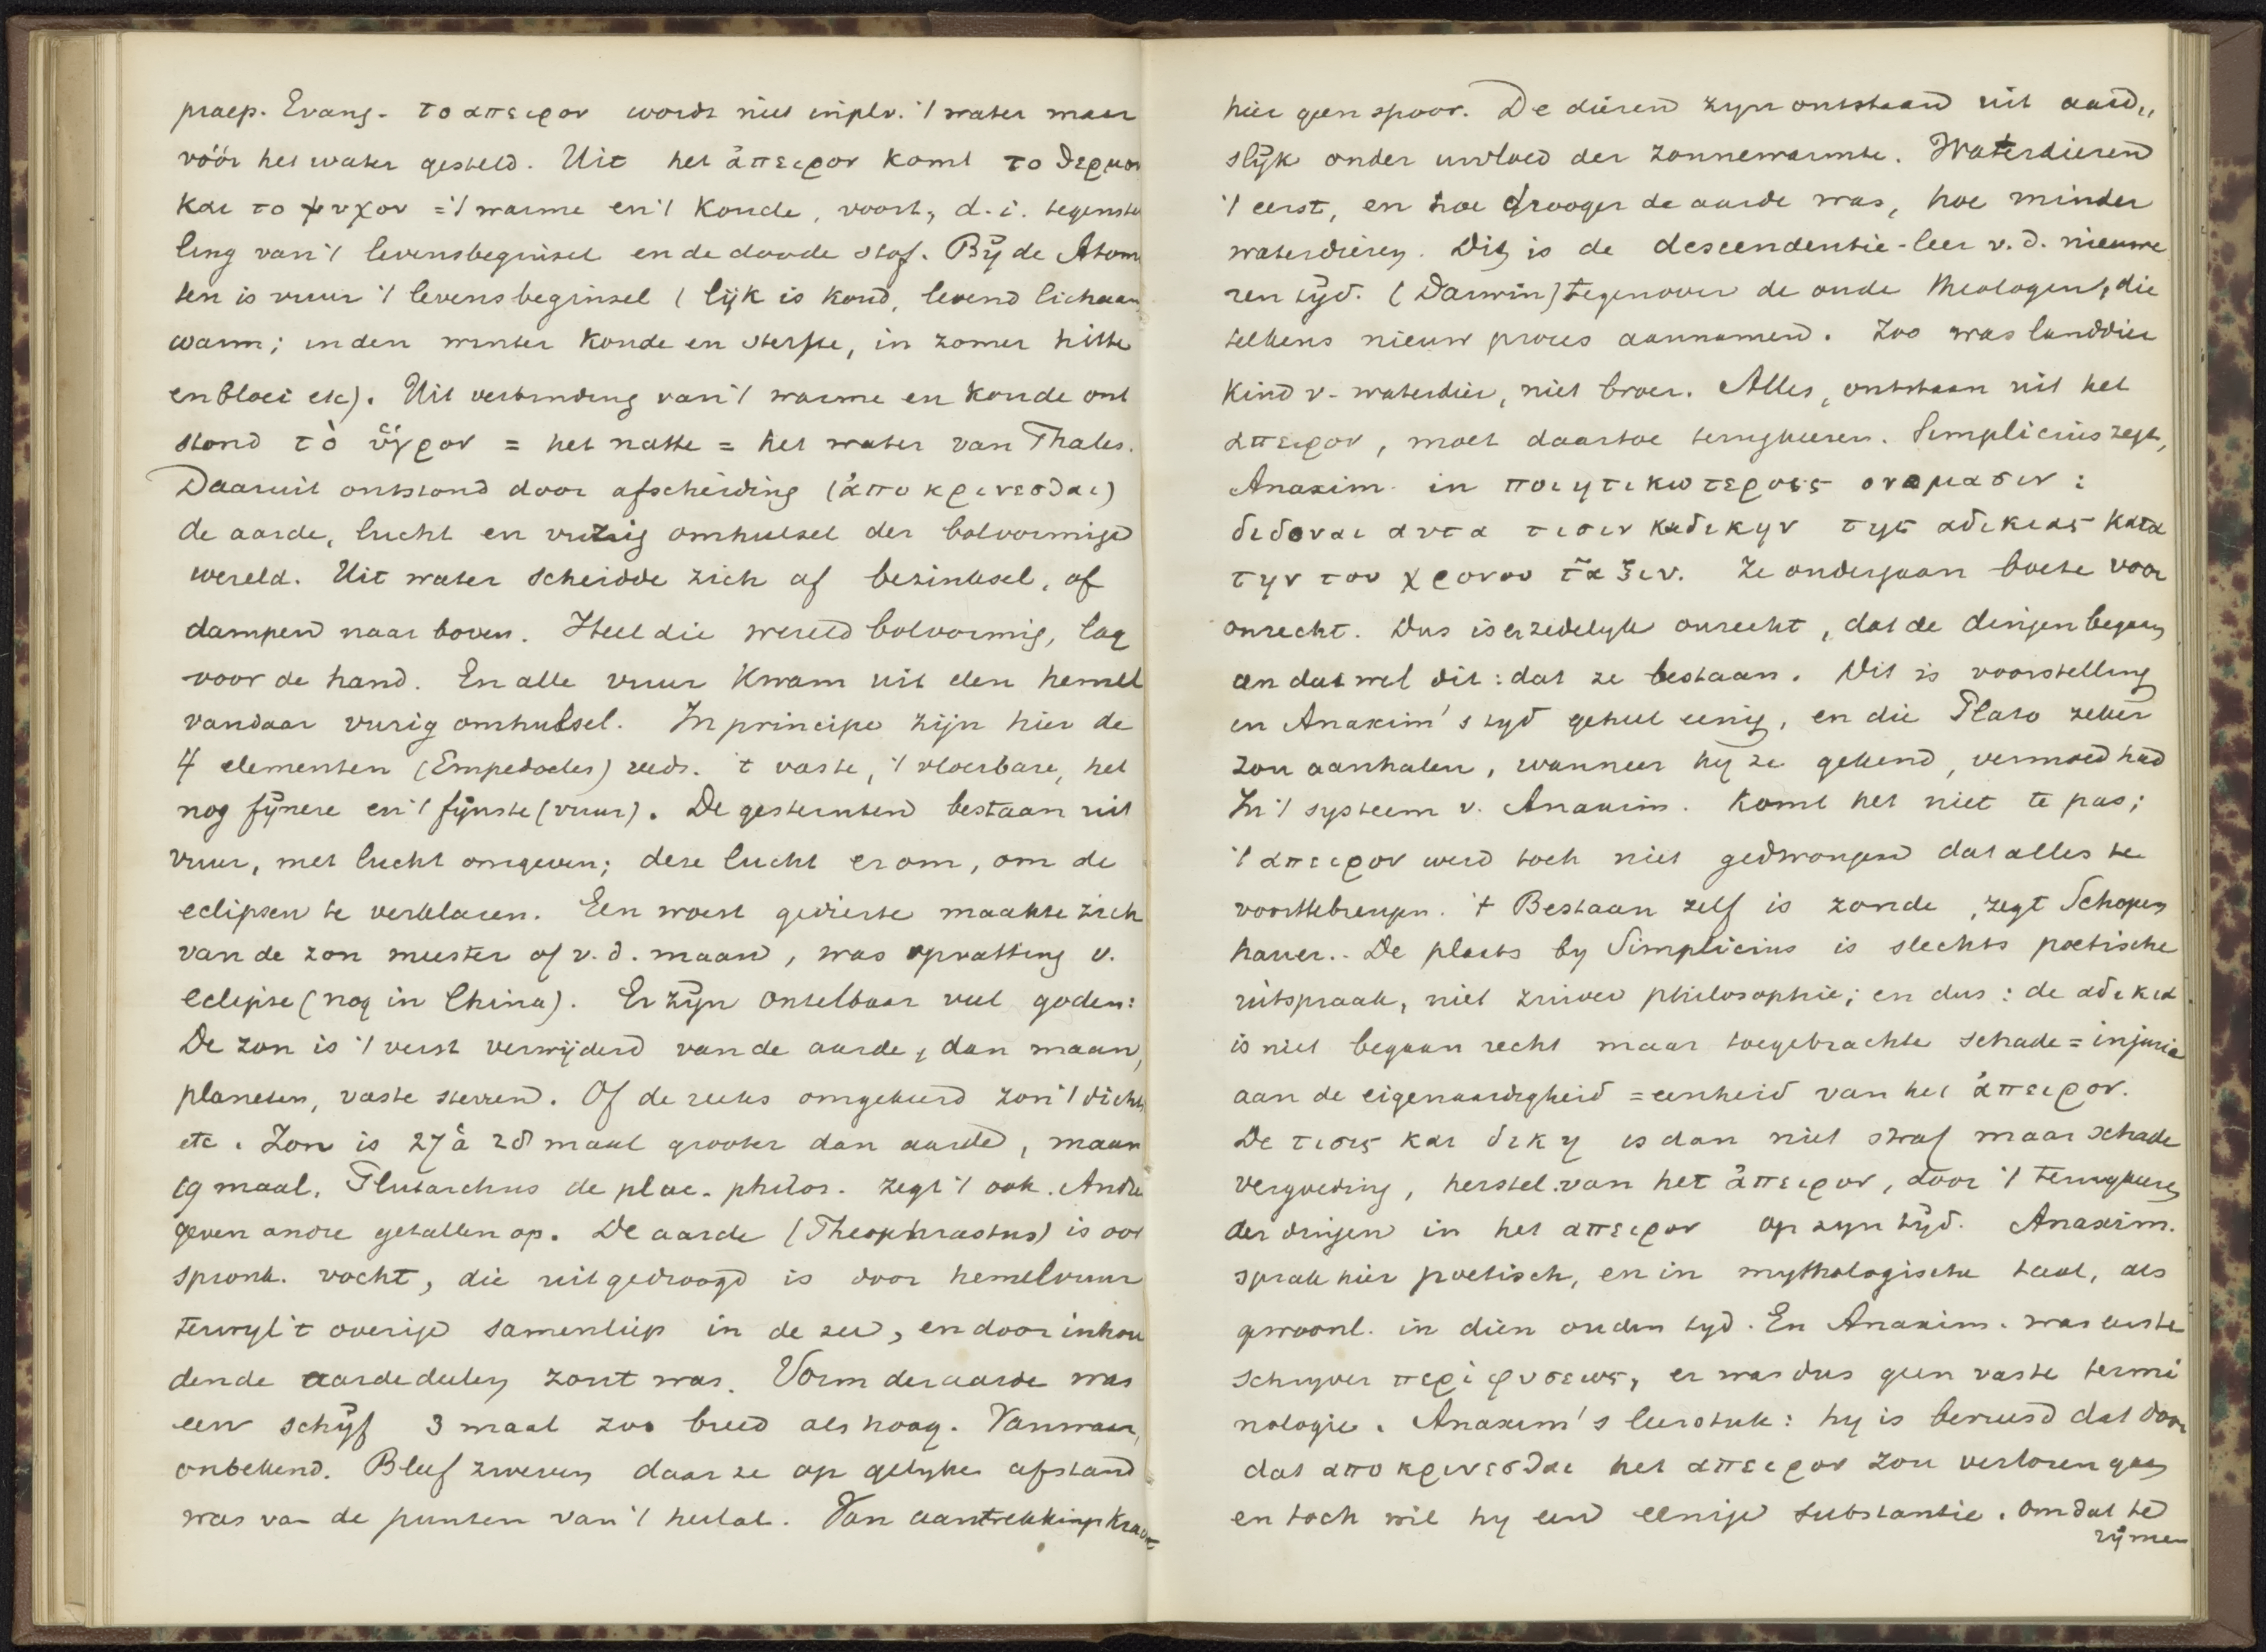 praep. Evang. το απειρον wordt niet in plv. 't water maar
vóór het water gesteld. Uit het ἀπειρον komt το θερμον
και το ψυχον = 't warme en 't koude, voort, d.i. tegenstel
ling van 't levensbeginsel en de doode stof. Bij de Atom
ten is vuur 't levensbeginsel (lijk is koud, levend lichaam
warm; in den winter koude en sterfte, in zomer hitte
en bloei etc). Uit verbinding van 't warme en koude ont
stond τὸ ὕγρον = het natte = het water van Thales.
Daaruit ontstond door afscheiding (ἀποκρινεσθαι)
de aarde, lucht en vurig omhulsel der bolvormige
wereld. Uit water scheidde zich af bezinksel, of
dampen naar boven. Heel die wereld bolvormig, lag
voor de hand. En alle vuur kwam uit den hemel
vandaar vurig omhulsel. In principe zijn hier de
4 elementen (Empedocles) reeds. 't vaste, 't vloeibare, het
nog fijnere en 't fijnste (vuur). De gesternten bestaan uit
vuur, met lucht omgeven; deze lucht erom, om de
eclipsen te verklaren. Een woest gedierte maakte zich
van de zon meester of v.d. maan, was opvatting v.
eclipse (nog in China). Er zijn ontelbaar veel goden:
De zon is 't verst verwijderd van de aarde, dan maan,
planeten, vaste sterren. Of de reeks omgekeerd zon 't dichtst
etc. Zon is 27 à 28 maal grooter dan aarde, maan
19 maal. Plutarchus de plac. philos. zegt 't ook. Andre
geven andre getallen op. De aarde (Theophrastus) is oor
spronk. vocht, die uitgedroogd is door hemelvuur
terwijl 't overige samenliep in de zee, en door inhou
dende aardedeelen zout was. Vorm der aarde was
een schijf 3 maal zoo breed als hoog. Vanwaar,
onbekend. Bleef zweven daar ze op gelijke afstand
was van de punten van 't heelal. Van aantrekkingskracht
hier geen spoor. De dieren zijn ontstaan uit aard„
slijk onder invloed der zonnewarmte. Waterdieren
't eerst, en hoe drooger de aarde was, hoe minder
waterdieren. Dit is de descendentie-leer v.d. nieuwe
ren tijd. (Darwin) tegenover de oude theologen, die
telkens nieuw proces aannamen. Zoo was landdier
kind v. waterdier, niet broer. Alles, ontstaan uit het
απειρον, moet daartoe terugkeeren. Simplicius zegt,
Anaxim. in ποιητικωτεροις ονομασιν:
διδοναι αυτα τισιν και δικην της αδικιας κατα
την του χρονου τα̃ξιν. Ze ondergaan boete voor
onrecht. Dus is er zedelijk onrecht, dat de dingen begaan
en dat wel dit: dat ze bestaan. Dit is voorstelling
in Anaxim's tijd geheel eenig, en die Plato zeker
zou aanhalen, wanneer hij ze gekend, vermoed had
In 't systeem v. Anaxim. komt het niet te pas;
't απειρον werd toch niet gedwongen dat alles te
voorttebrengen. 't Bestaan zelf is zonde, zegt Schopen
hauer.. De plaats by Simplicius is slechts poetische
uitspraak, niet zuiver philosophie; en dus: de αδικια
is niet begaan recht maar toegebrachte schade = injuria
aan de eigenaardigheid = eenheid van het ἀπειρον.
De τισις και δικη is dan niet straf maar schade
vergoeding, herstel van het ἀπειρον, door 't terugkeeren
der dingen in het απειρον op zyn tijd. Anaxim.
sprak hier poetisch, en in mythologische taal, als
gewoonl. in dien ouden tyd. En Anaxim. was eerste
schryver περὶ φυσεως, er was dus geen vaste termi
nologie. Anaxim's leerstuk: hy is bevreesd dat door
dat αποκρινεσθαι het απειρον zou verloren gaan
en toch wil hy een eenige substantie. Om dat te
rijmen